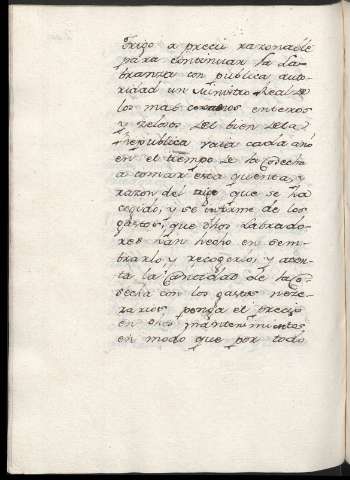 trigo a precio razonable
para continuar la la-
branza con publica auto-
ridad un Ministro Real de
los mas enteros
y zelosos del bien dela
Republica vaya cada año
en el tiempo de la Cosecha
a tomar essa quenta, y
razon del trigo que se ha
cogido, y se informe de los
gastos, que dhos Labrado-
res han hecho en sem-
brarlo, y recogerlo, y aten-
ta la Cantidad de la Co-
secha con los gastos nece-
sarios ponga el precio
en dhos mantenimientos
en modo que por todo